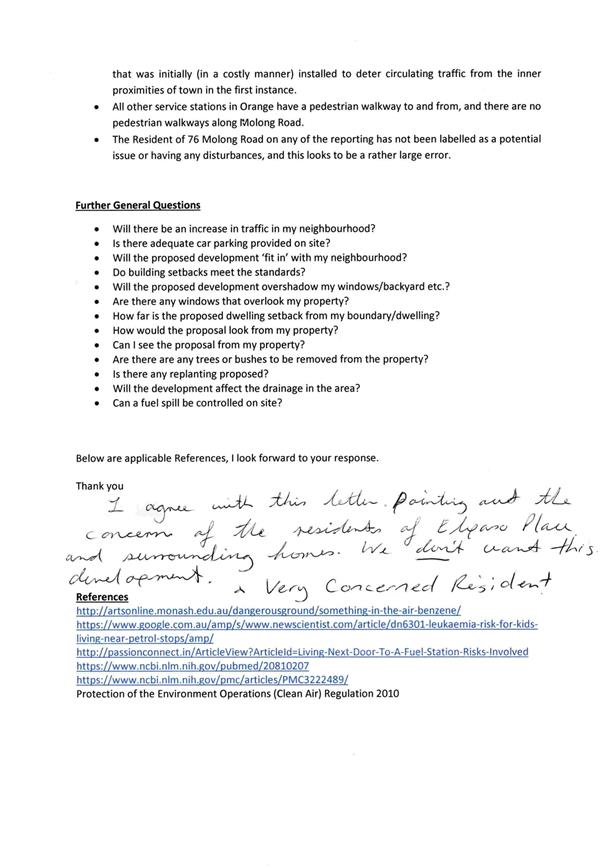 that was initially (in a costly manner) installed to deter circulating traffic from the inner
proximities of town in the first instance.
• All other service stations in Orange have a pedestrian walkway to and from, and there are no
pedestrian walkways along Molong Road.
• The Resident of 76 Molong Road on any of the reporting has not been labelled as a potential
issue or having any disturbances, and this looks to be a rather large error.
Further General Questions
• Will there be an increase in traffic in my neighbourhood?
• Is there adequate car parking provided on site?
• Will the proposed development 'fit in' with my neighbourhood?
• Do building setbacks meet the standards?
• Will the proposed development overshadow my windows/backyard etc.?
• Are there any windows that overlook my property?
• How far is the proposed dwelling setback from my boundary/dwelling?
• How would the proposal look from my property?
• Can I see the proposal from my property?
• Are there are any trees or bushes to be removed from the property?
• Is there any replanting proposed?
• Will the development affect the drainage in the area?
• Can a fuel spill be controlled on site?
Below are applicable References, I look forward to your response.
Thank you
I agree with this letter. Pointing out the
concern of the residents of Elpaso Place
and surrounding homes. We don't want this
development. A Very Concerned Resident
References
http://artsonline.monash.edu.au/dangerousground/something-in-the-air-benzene/
https://www.google.com.au/amp/s/www.newscientist.com/article/dn6301-leukaemia-risk-for-kids-
living-near-petrol-stops/amp/
http://passionconnect.in/ArticleView?ArticleId=Living-Next-Door-To-A-Fuel-Station-Risks-Involved
https://www.ncbi.nlm.nih.gov/pubmed/20810207
https://www.ncbi.nlm.nih.gov/pmc/articles/PMC3222489/
Protection of the Environment Operations (Clean Air) Regulation 2010